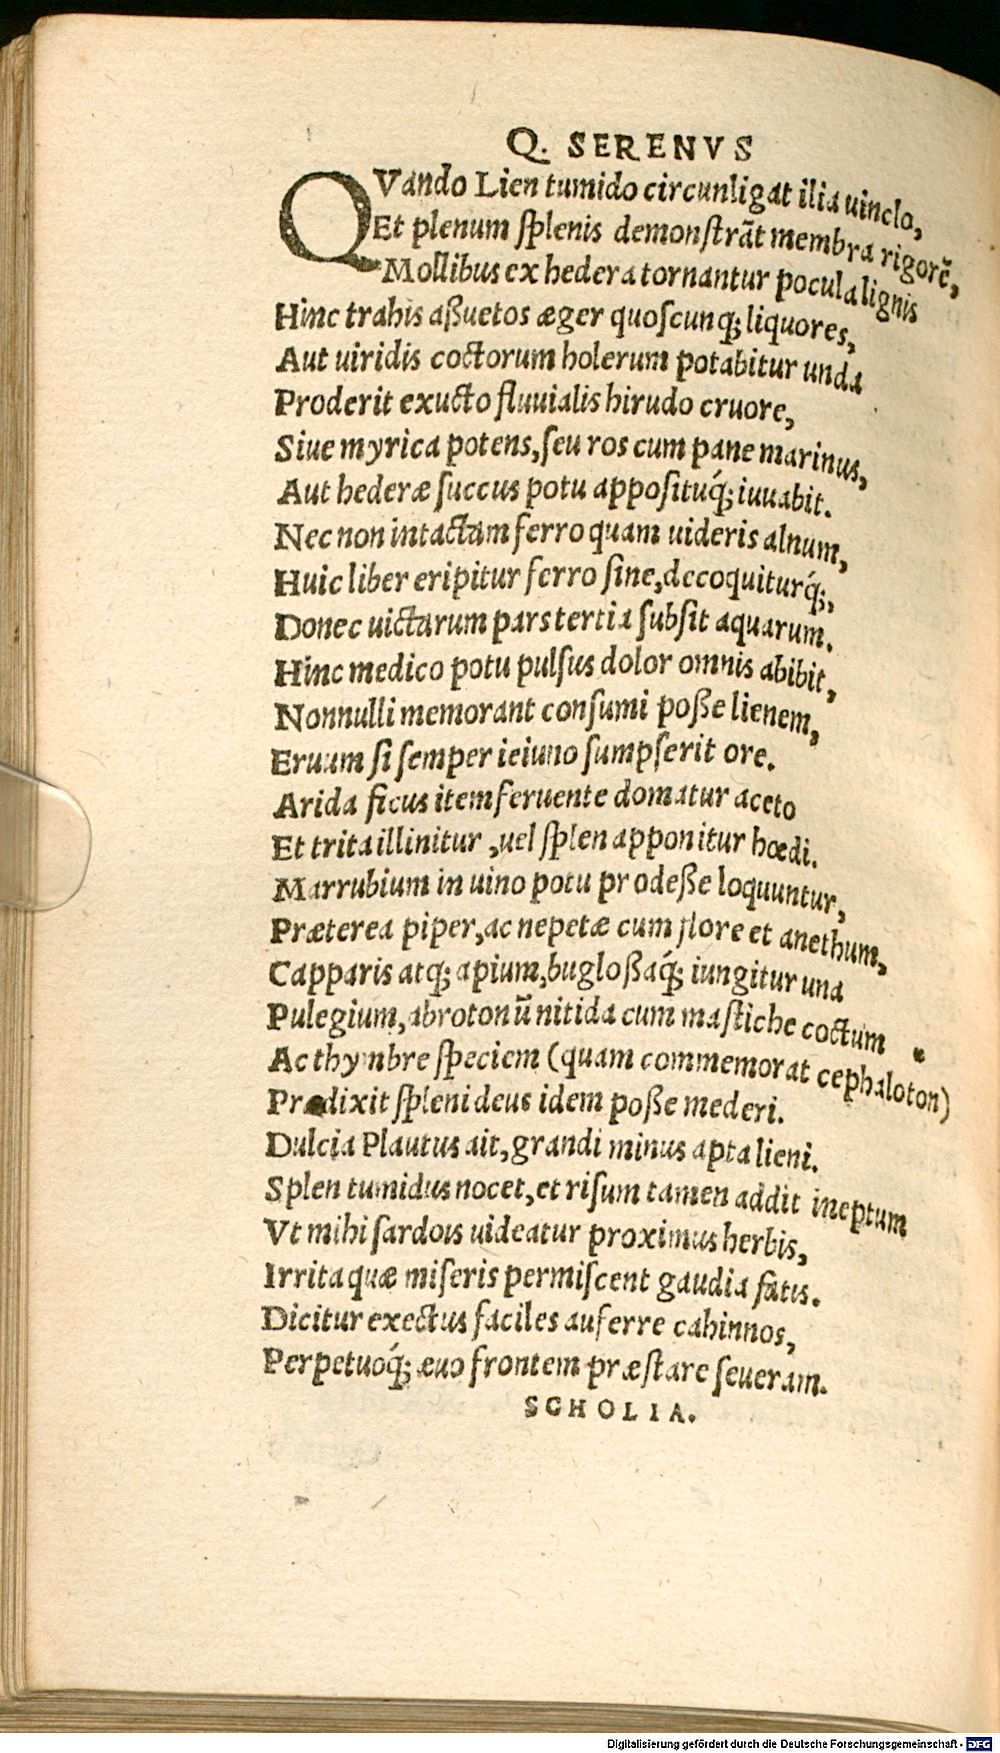 Q. SERENVS
QVando Lien tumido circunligat ilia uinclo,
Et plenum ſplenis demonſtrāt membra rigorē,
Mollibus ex hedera tornantur pocula lignis
Hinc trahis aßuetos æger quoſcunq; liquores,
Aut uiridis coctorum holerum potabitur unda
Proderit exucto fluuialis hirudo cruore,
Siue myrica potens, ſeu ros cum pane marinus,
Aut hederæ ſuccus potu appoſituq́; iuuabit.
Nec non intactam ferro quam uideris alnum,
Huic liber eripitur ferro ſine, decoquiturq́;,
Donec uictarum pars tertia ſubſit aquarum.
Hinc medico potu pulſus dolor omnis abibit,
Nonnulli memorant conſumi poße lienem,
Eruum ſi ſemper ieiuno ſumpſerit ore.
Arida ficus item feruente domatur aceto
Et trita illinitur, uel ſplen apponitur hœdi.
Marrubium in uino potu prodeße loquuntur,
Præterea piper, ac nepetæ cum flore et anethum,
Capparis atq; apium, bugloßaq́; iungitur una
Pulegium, abrotonū nitida cum maſtiche coctum
Ac thymbre ſpeciem (quam commemorat cephaloton)
Prædixit ſpleni deus idem poße mederi.
Dulcia Plautus ait, grandi minus apta lieni.
Splen tumidus nocet, et riſum tamen addit ineptum
Vt mihi ſardois uideatur proximus herbis,
Irrita quæ miſeris permiſcent gaudia fatis.
Dicitur exectus faciles auferre cahinnos,
Perpetuoq́; æuo frontem præſtare ſeueram.
SCHOLIA.
Digitalisierung gefördert durch die Deutsche Forschungsgemeinschaft - DFG